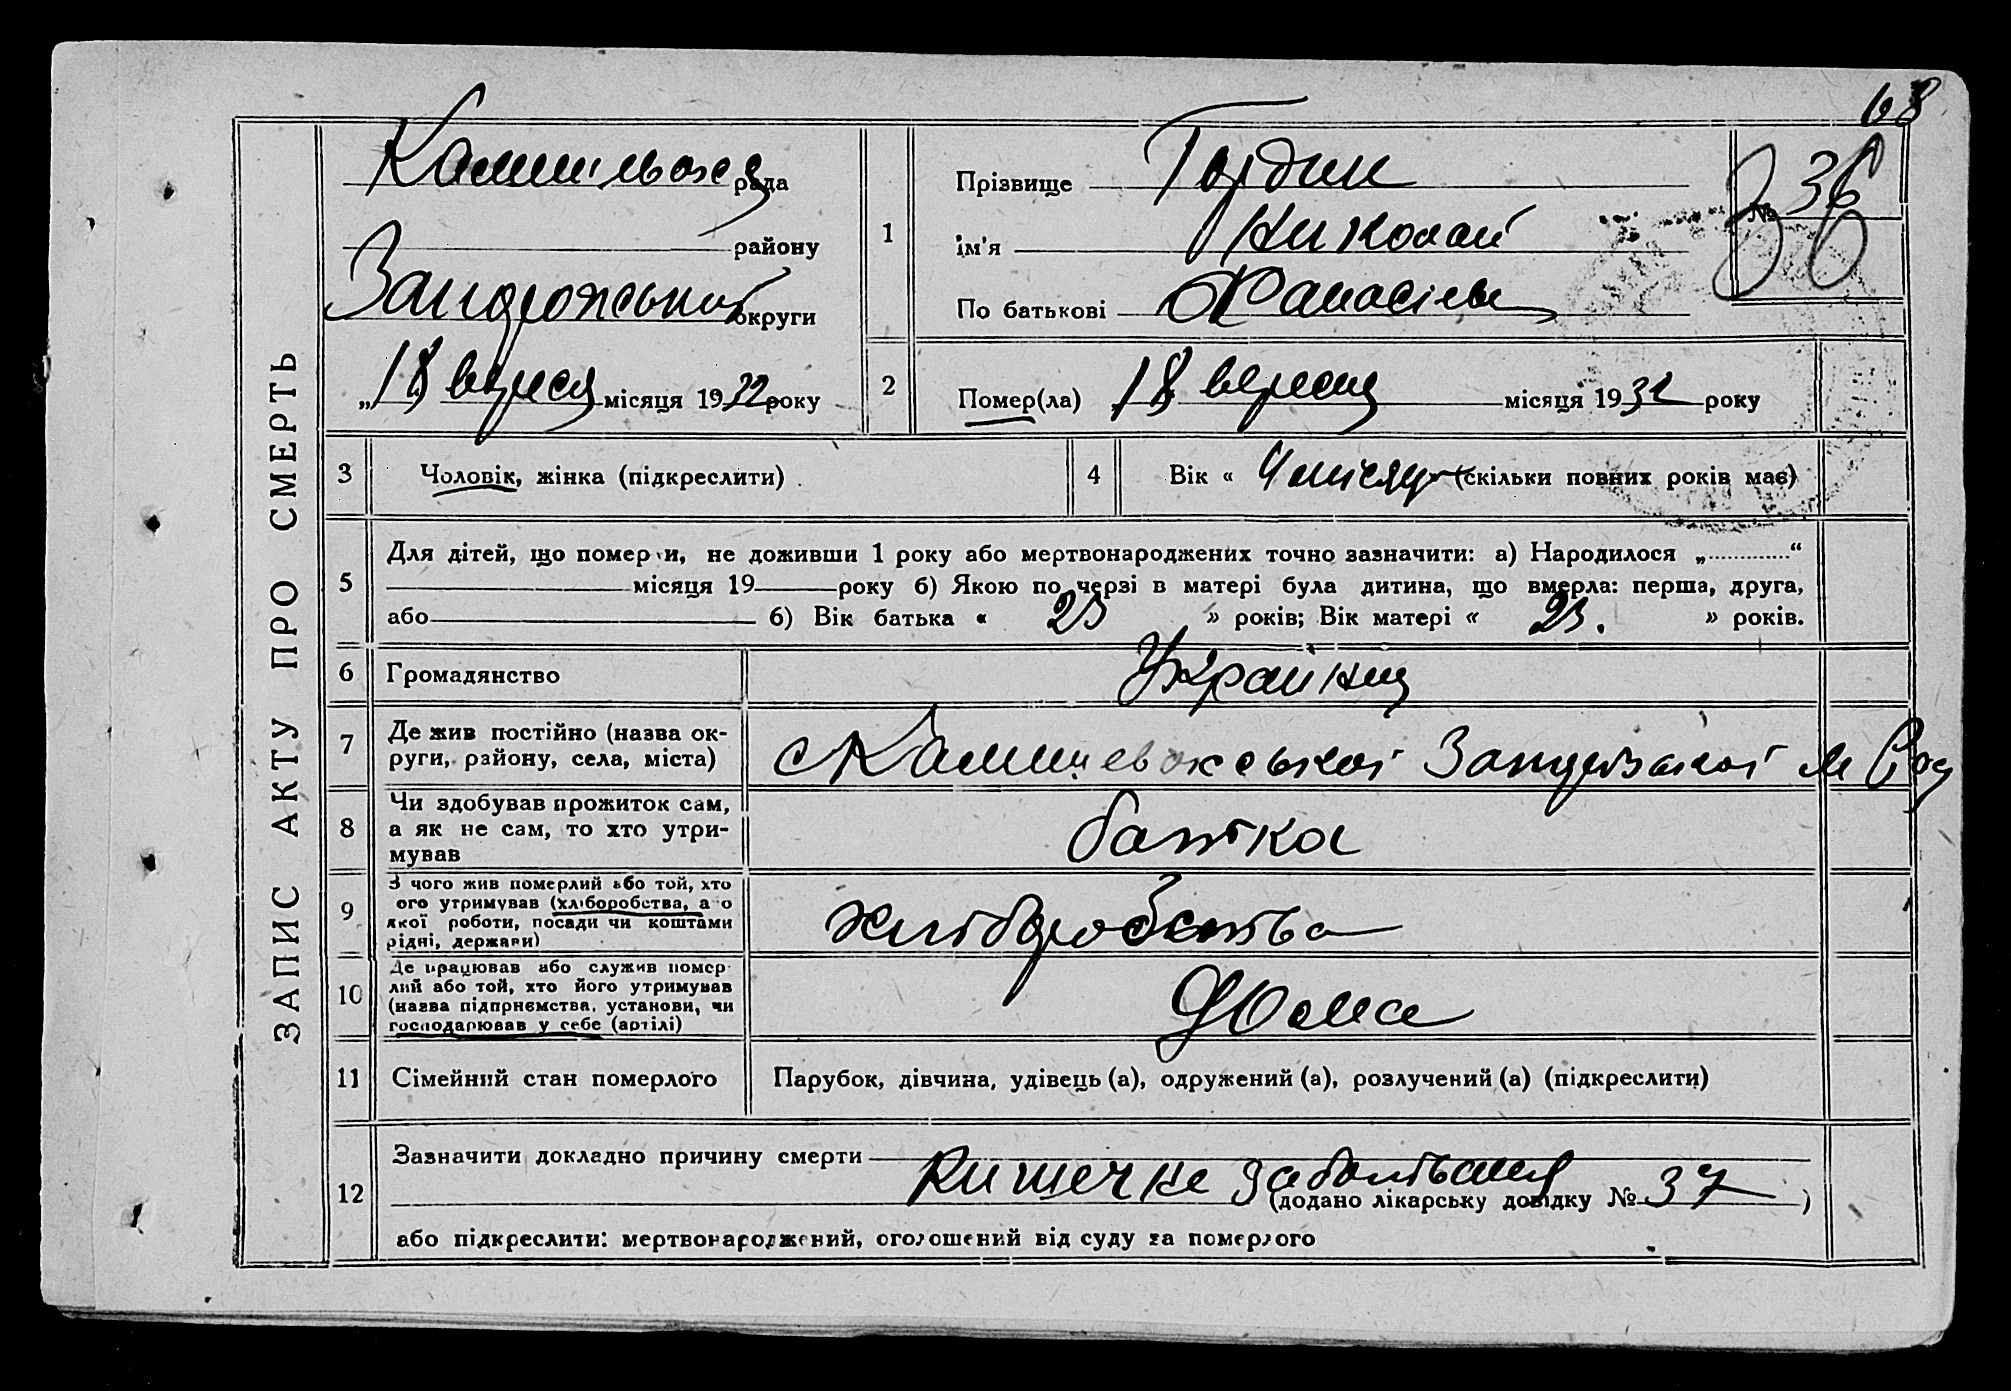 68
ЗАПИС АКТУ ПРО СМЕРТЬ
рада
району
округи
„18 вересня місяця 1932 року
1
Прізвище Гордик
ім'я Николай
По батькові Афанасієв
№ 36
2
Помер(ла) 18 вересня місяця 1932 року
3 Чоловік, жінка (підкреслити)
4 Вік « 4 місяця (скільки повних років має)
5
Для дітей, що померли, не доживши 1 року або мертвонароджених точно зазначити: а) Народилося „ “
місяця 19 року б) Якою по черзі в матері була дитина, що вмерла: перша, друга,
або б) Вік батька « 23 » років; Вік матері « 23. » років.
6 Громадянство
7 Де жив постійно (назва ок-
руги, району, села, міста)
8 Чи здобував прожиток сам,
а як не сам, то хто утри-
мував
батко
9 З чого жив померлий або той, хто
ого утримував (хліборобства, а о
якої роботи, посади чи коштами
рідні, держави)
10 Де працював або служив помер
лий або той, хто його утримував
(назва підприємства, установи, чи
господарював у себе (артілі)
Дома
11 Сімейний стан померлого
Парубок, дівчина, удівець (а), одружений (а), розлучений (а) (підкреслити)
12
Зазначити докладно причину смерти
Кишечне
(додано лікарську довідку № 37 )
або підкреслити: мертвонароджений, оголошений від суду за померлого